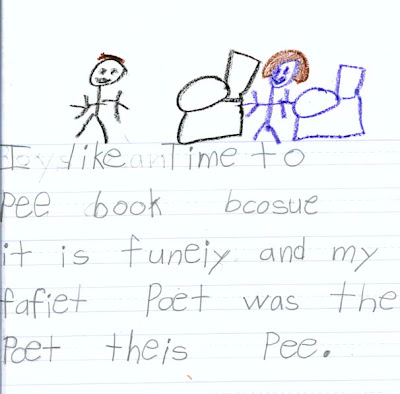 I like Time to
Pee book bcosue
it is funeiy and my
fafiet Poet was the
Poet theis Pee.